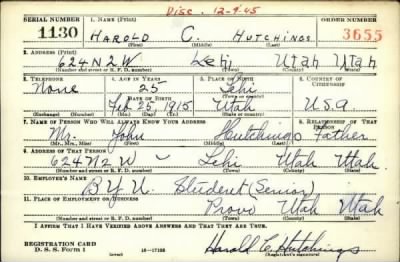 Disc. 12-9-45
SERIAL NUMBER 1. NAME (Print) ORDER NUMBER
1130 HAROLD C. HUTCHINGS 3655
(First) (Middle) (Last)
2. ADDRESS (Print)
624 N 2 W Lehi Utah Utah
(Number and street or R. F. D. number) (Town) (County) (State)
3. TELEPHONE 4. AGE IN YEARS 5. PLACE OF BIRTH 6. COUNTRY OF CITIZENSHIP
None 25 Lehi
DATE OF BIRTH (Town or county)
Feb. 25, 1915 Utah U.S.A.
(Exchange) (Number) (Mo.) (Day) (Yr.) (State or country)
7. NAME OF PERSON WHO WILL ALWAYS KNOW YOUR ADDRESS 8. RELATIONSHIP OF THAT PERSON
Mr. John Hutchings Father
(Mr., Mrs., Miss) (First) (Middle) (Last)
9. ADDRESS OF THAT PERSON
624 N 2 W - Lehi Utah Utah.
(Number and street or R. F. D. number) (Town) (County) (State)
10. EMPLOYER'S NAME
B.Y.U. Student (Senior)
11. PLACE OF EMPLOYMENT OR BUSINESS
Provo Utah Utah
(Number and street or R. F. D. number) (Town) (County) (State)
I AFFIRM THAT I HAVE VERIFIED ABOVE ANSWERS AND THAT THEY ARE TRUE.
REGISTRATION CARD
D. S. S. Form 1 (over) 16-17105 Harold C. Hutchings
(Registrant's signature)